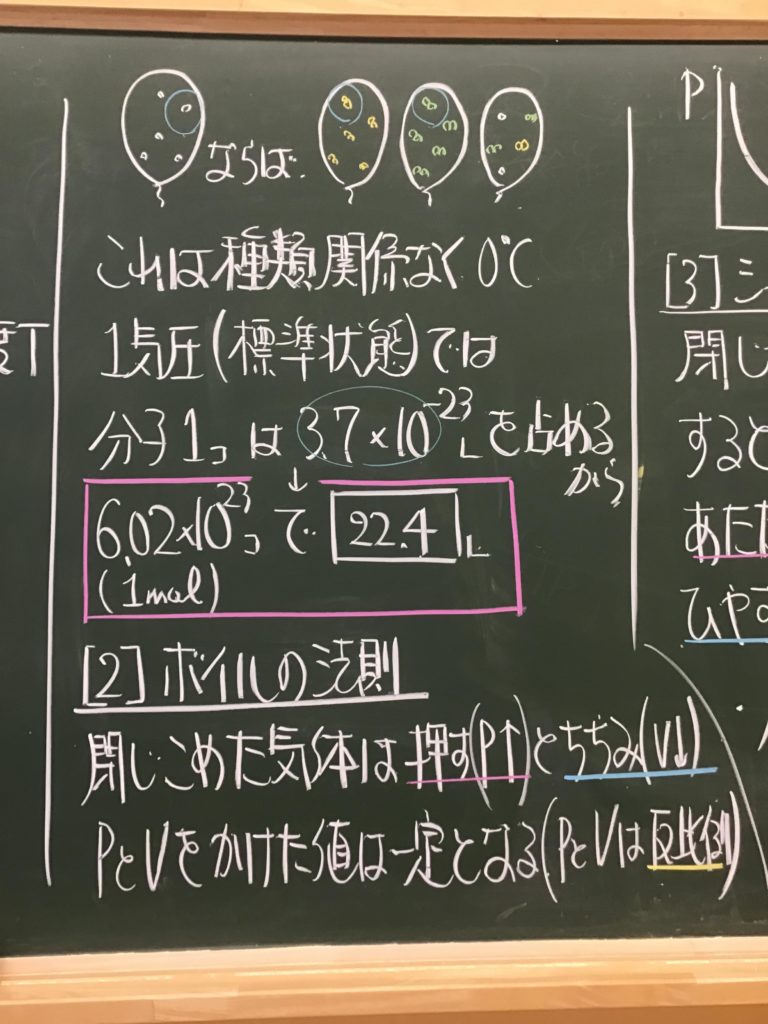 度T
ならば.
これは種類関係なく0℃
1気圧(標準状態)では
分子1コは3.7×10⁻²³Lを占める
から
↓
6.02×10²³コで 22.4L
(1mol)
[2]ボイルの法則
閉じこめた気体は押す(P↑)とちぢみ(V↓)
PとVをかけた値は一定となる(PとVは反比例)
P
[3]シ
閉じ
すると
あたた
ひやす